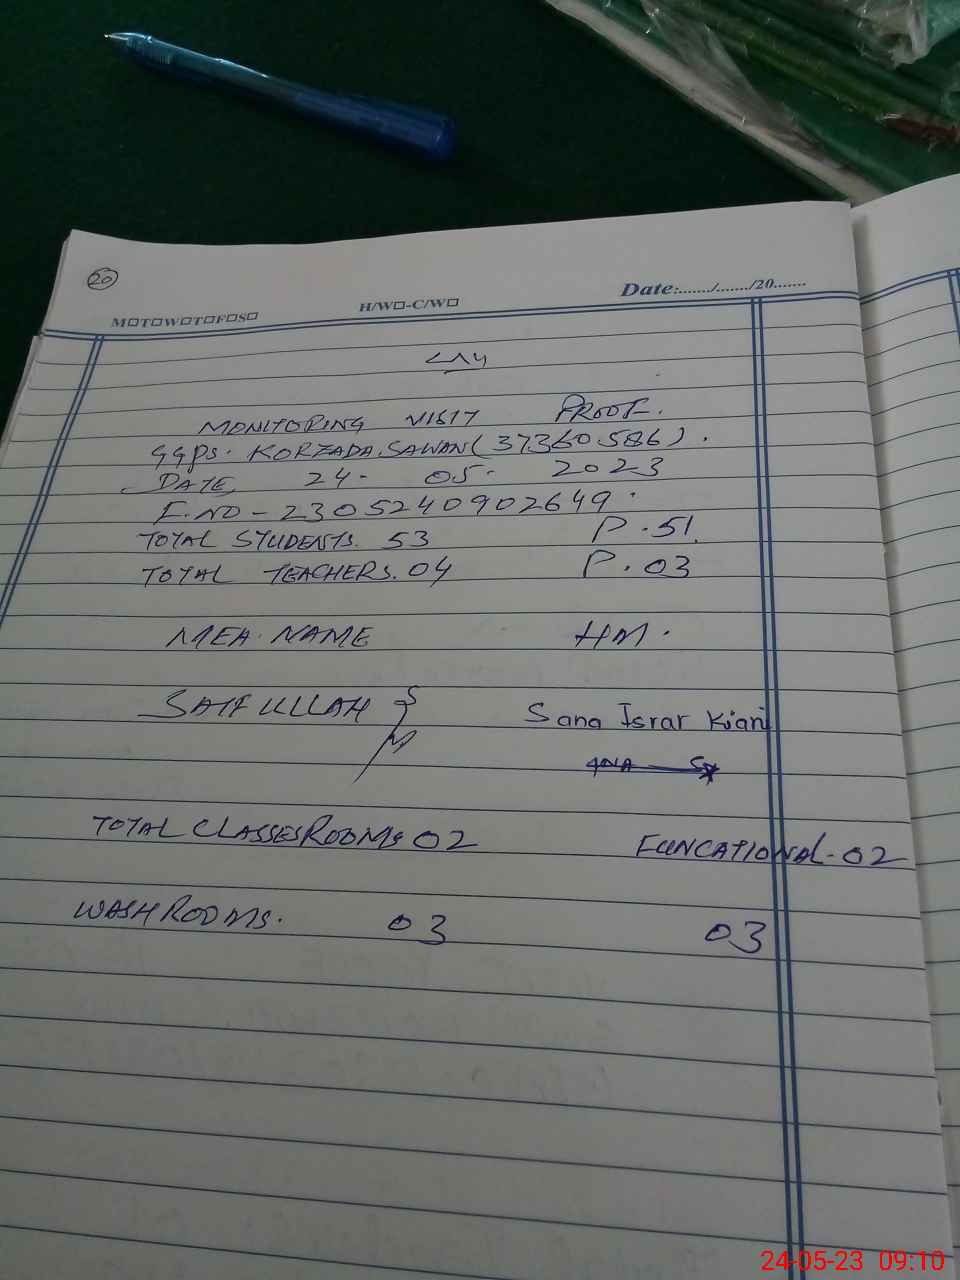 20
M□T□W□T□F□S□ H/W□-C/W□ Date:......./......./20.......
MONITORING VISIT PROOF.
GGPS. KORZADA.SAWAN(37360586).
DATE 24- 05- 2023
F.NO - 2305240902649.
TOTAL STUDENTS. 53 P.51.
TOTAL TEACHERS. 04 P.03
MEA. NAME HM.
SAIFULLAH Sana Israr Kiani
TOTAL CLASSESROOMS 02 FUNCATIONAL-02
WASHROOMS. 03 03
24-05-23 09:10